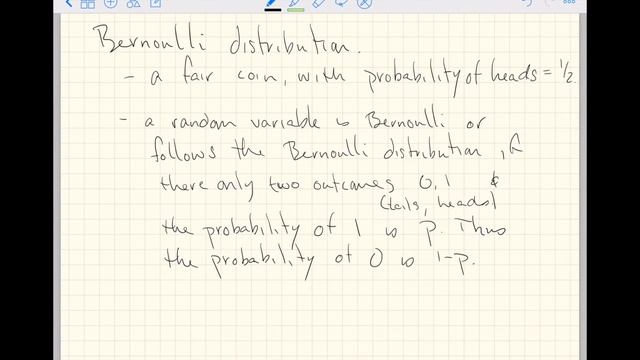 Bernoulli distribution.
- a fair coin, with probability of heads = 1/2.
- a random variable is Bernoulli or
follows the Bernoulli distribution, if
there only two outcomes 0,1 &
(tails, heads)
the probability of 1 is p. Thus
the probability of 0 is 1-p.